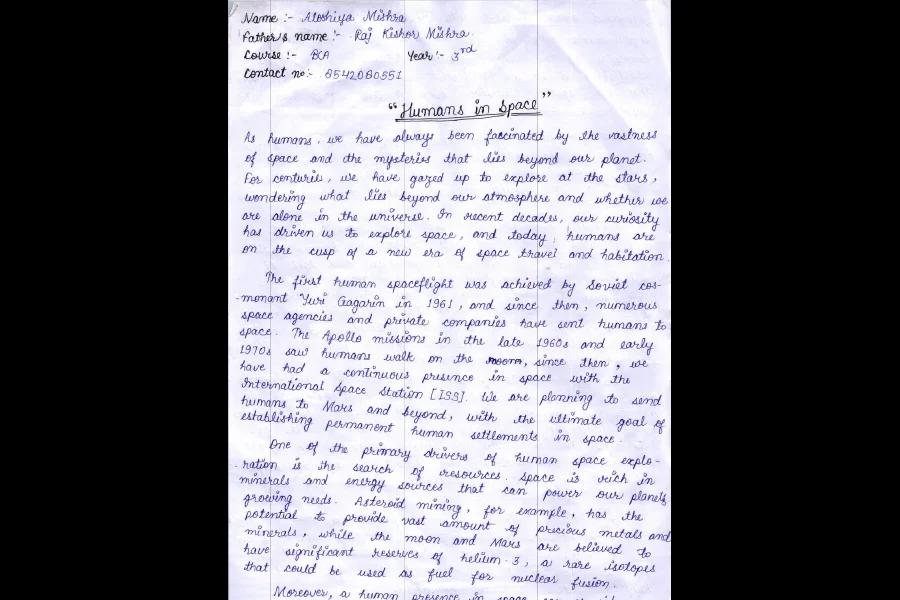 Name :- Atoshiya Mishra
Father's name :- Raj Kishor Mishra.
Course :- BCA Year :- 3rd
Contact no:- 8542080551
"Humans in Space"
As humans, we have always been fascinated by the vastness
of space and the mysteries that lies beyond our planet.
For centuries, we have gazed up to explore at the stars,
wondering what lies beyond our atmosphere and whether we
are alone in the universe. In recent decades, our curiosity
has driven us to explore space, and today, humans are
on the cusp of a new era of space travel and habitation.
The first human spaceflight was achieved by Soviet cos-
-monant Yuri Gagarin in 1961, and since then, numerous
space agencies and private companies have sent humans to
space. The Apollo missions in the late 1960s and early
1970s saw humans walk on the moon, since then, we
have had a continuous presence in space with the
International Space Station [ISS]. We are planning to send
humans to Mars and beyond, with the ultimate goal of
establishing permanent human settlements in space.
One of the primary drivers of human space explo-
-ration is the search of resources. Space is rich in
minerals and energy sources that can power our planets
growing needs. Asteroid mining, for example, has the
potential to provide vast amount of precious metals and
minerals, while the moon and Mars are believed to
have significant reserves of helium-3, a rare isotopes
that could be used as fuel for nuclear fusion.
Moreover, a human presence in space